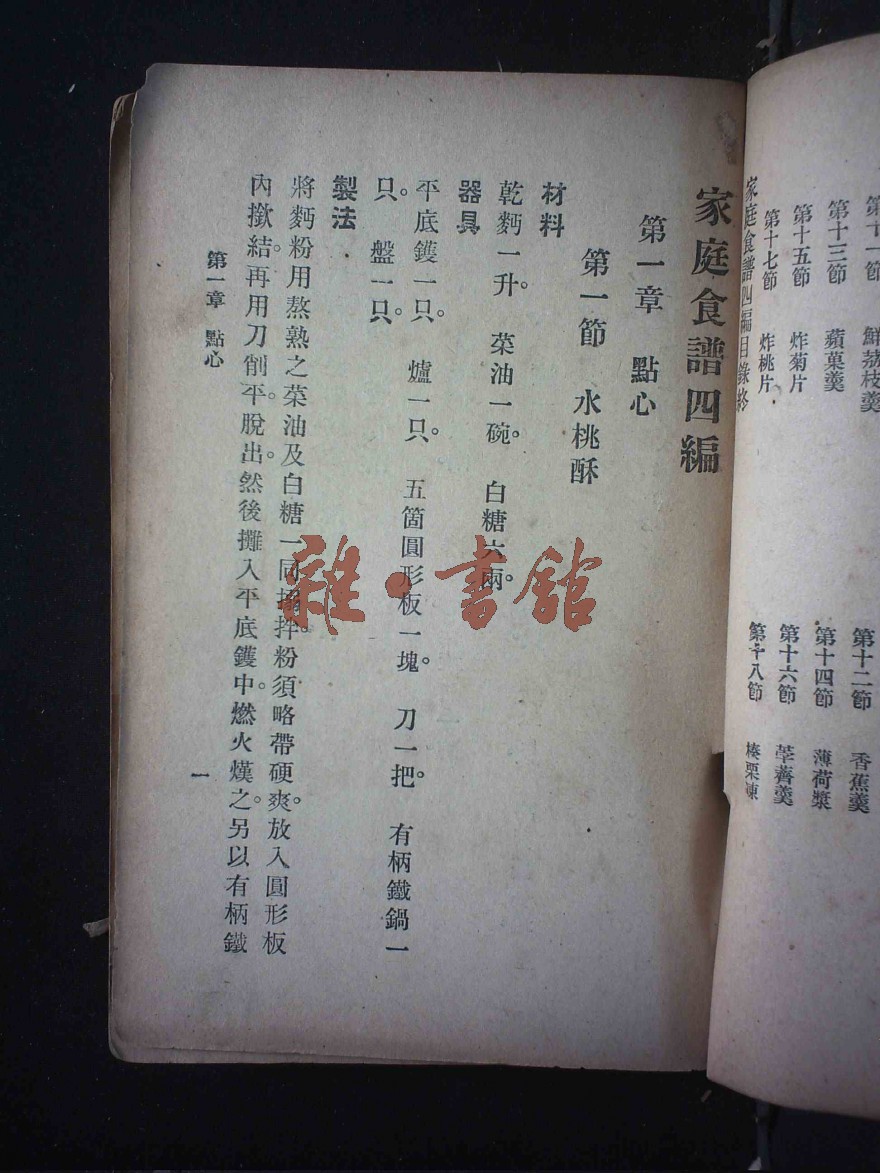 第十一節　鮮荔枝羹
第十二節　香蕉羹
第十三節　蘋菓羹
第十四節　薄荷漿
第十五節　炸菊片
第十六節　荸薺羹
第十七節　炸桃片
第十八節　栗凍
家庭食譜四編目錄終
家庭食譜四編
第一章　點心
第一節　水桃酥
材料
乾麪一升。　菜油一碗。　白糖六兩。
器具
平底鑊一只。　爐一只。　五箇圓形板一塊。　刀一把。　有柄鐵鍋一
只。　盤一只。
製法
將麪粉用熬熟之菜油及白糖一同搨拌。粉須略帶硬爽。放入圓形板
內撳結。再用刀削平。脫出。然後攤入平底鑊中。燃火熯之。另以有柄鐵
第一章　點心
一
雜·書館